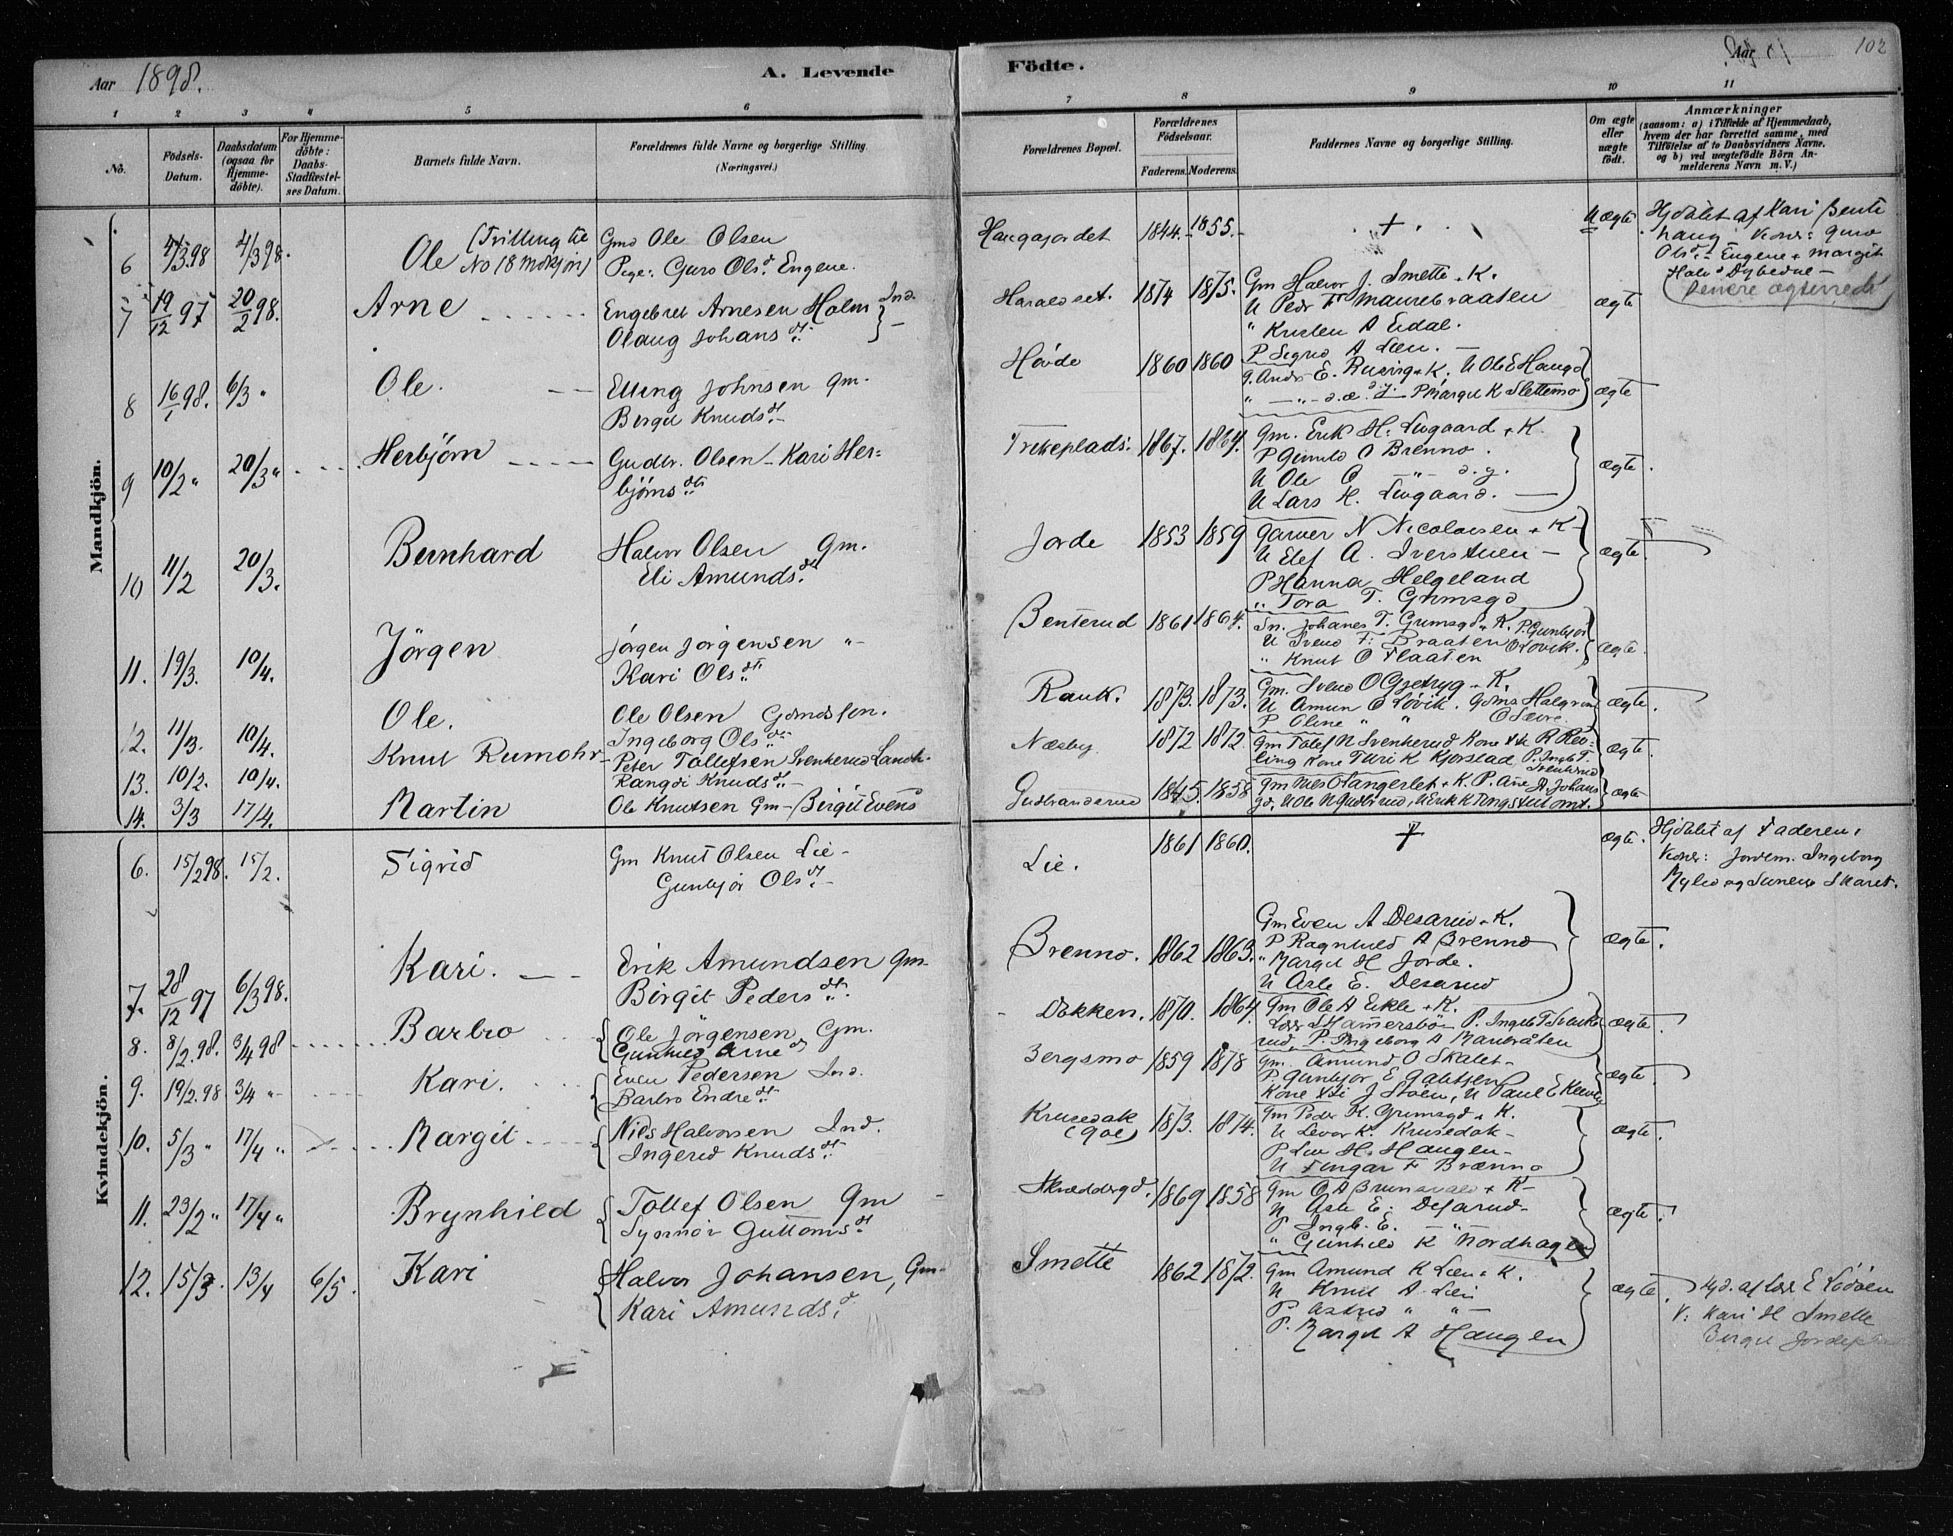 Aar 1898. A. Levende Födte. Aar 102
1 2 3 4 5 6 7 8 9 10 11
No. Födsels-Datum. Daabsdatum (ogsaa for Hjemme-döbte). For Hjemme-döbte: Daabs-Stadfæstel-ses Datum. Barnets fulde Navn. Forældrenes fulde Navne og borgerlige Stilling. (Næringsvei.) Forældrenes Bopæl. Forældrenes Födselsaar. Faderens. Moderens. Faddernes Navne og borgerlige Stilling. Om ægte eller uægte födt. Anmærkninger
(saasom: a) i Tilfælde af Hjemmedaab,
hvem der har forrettet samme, med
Tilföielse af to Daabsvidners Navne.
og b) ved uægtefödte Börn An-
melderens Navn m. V.)
Mandkjön.
6 4/3 98 4/3 98. Ole (Tvilling til No 18 Mdkjön) Gmd Ole Olsen
Pige: Guro Olsd. Engene. Haugajordet 1844. 1855. + Uægte Hjdöbt af Kari Bente
haug Vidner: Guro
Olsd. Engene + Margit
Halvd Dybedne
senere ægteviede
7 19/12 97 20/2 98. Arne Engebret Arnesen Holm Ind.
Olaug Johansdt. Haraldset. 1874 1875. Gm Halvor J. Smette + K.
U Pedr Maurebraaten
" Kristen A Eidal.
P Sigrid A Lien. ægte
8 16/1 98. 6/3 " Ole. Elling Johnsen Gm.
Birgit Knudsdt. Hövde 1860 1860 U Ole E Haugd
P Margit K Slettemo ægte
9 10/2 " 20/3 " Herbjörn Gudbr. Olsen - Kari Her-
björnsdtr Trekeplads. 1867. 1864. Gm. Erik H. Livgaard + K.
P Gunild O Brenno.
U Ole O " d. y.
U Lars H. Livgaard. ægte.
10 11/2 20/3. Bernhard Halvor Olsen Gm.
Eli Amundsdt. Jorde 1853 1859 Garver N Nicolaisen + K
U Elef A. Iverstuen
P Hanna Helgeland
" Tora T. Grimsgd ægte.
11. 19/3. 10/4. Jörgen Jörgen Jörgensen "
Kari Olsdtr. Benterud 1861 1864. Johanes T. Grimsgd + K. P. Gunbjör
U Svend T. Braaten O Lövik.
" Knut O Flaaten ægte.
12. 11/3. 10/4. Ole. Ole Olsen Gdmdssön.
Ingeborg Olsdtr. Rauk. 1873. 1873. Gm. Svend O Gjetryg + K.
U Amun O Lövik.
P Oline " " ægte.
13. 10/2. 10/4. Knut Rumohr Peter Tollefsen Svenkerud Landh.
Rangdi Knudsdt. Næsby 1872 1872. Gm Tolef N Svenkerud
Turi K Kjorstad, P. Ingb. T.
Svenkerud ægte.
14. 3/3 17/4. Martin Ole Knutsen Gm - Birgit Evens Gudbrandsrud 1845. 1858 + K. P. Ane A. Johans ægte
Kvindekjön.
6. 15/2 98. 15/2. Sigrid Gm Knut Olsen Lie -
Gunbjör Olsdt. Lie. 1861 1860. + ægte. Hjdöbt af Faderen,
Vidner: Jordem. Ingeborg
Skaret.
7. 28/12 97 6/3 98. Kari. Erik Amundsen Gm
Birgit Pedersdt. Brenno. 1862 1863. Gm Even A Desarud + K.
P Ragnhild A Brenno
" Margit H Jorde.
U Asle E. Desarud ægte.
8. 8/2 98. 3/4 98 Barbro Ole Jörgensen Gm.
Gunhild Arned Dokken. 1870. 1864. Gm Ole A Eikle + K.
P. Ingeb T Svenke
rud, P. Ingeborg A Maurbråten ægte.
9. 19/2 98 3/4 " Kari. Even Pedersen Ind.
Barbro Endredt. Bergsmo 1859 1878 Gm. Amund O Skalet
P. Gunbjor E
Kone J Stöen, U Paul E ægte.
10. 5/3 " 17/4 " Margit Nils Halvorsen Ind.
Ingerid Knudsdt. Krusedok
(Gol) 1873. 1874. Gm Peder K. Grimsgd + K.
U Levor K. Krusedok
P Liv H. Haugen
U Fingar F Brænno ægte.
11. 23/2 " 17/4 " Brynhild Tollef Olsen Gm
Synnöv Guttormsdt Skræddergd. 1869 1858 + K
U Asle E. Desarud
P Ingb. E. "
" Gunhild K Nordhagen ægte.
12. 15/3. 13/4 6/5. Kari Halvor Johansen, Gm.
Kari Amundsd. Smette 1862 1872. Gm Amund K Lien + K.
U Knut A. Lien
P. Astrid " "
P. Margit A Haugen ægte. Hjd. af E Lödöen
V: Kari H Smette
Birgit